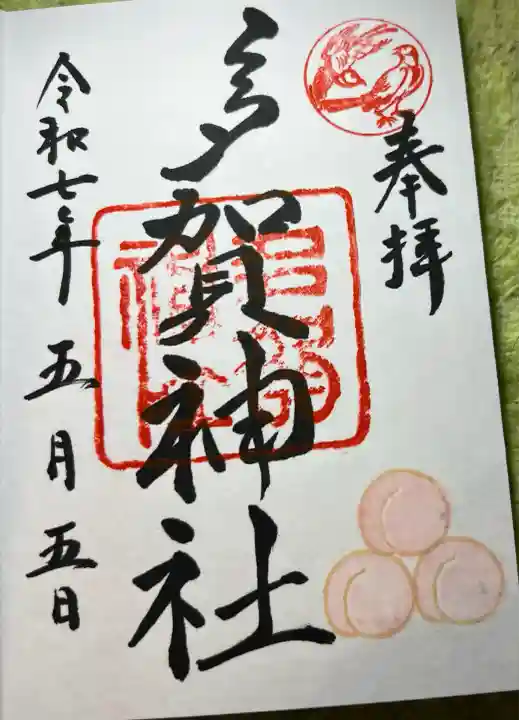 奉拝
多賀神社
令和七年 五月五日